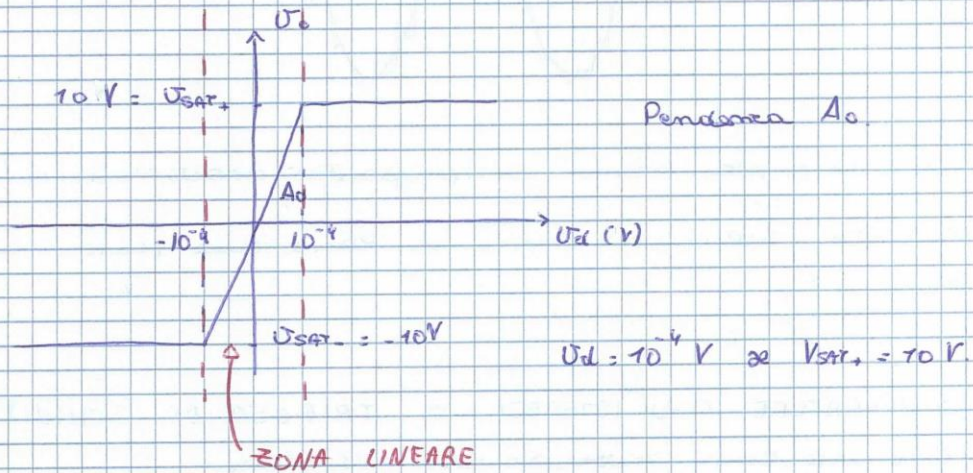 Uo
10 V = USAT+
Pendenza Ao.
Ad
-10⁻⁴ 10⁻⁴ Ud (V)
USAT- = -10V
Ud = 10⁻⁴ V se VSAT+ = 10 V.
ZONA LINEARE